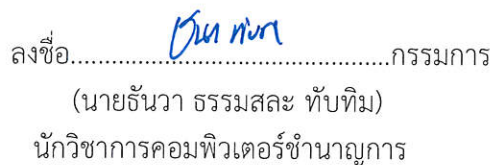 ลงชื่อ................................................กรรมการ
(นายธันวา ธรรมสละ ทับทิม)
นักวิชาการคอมพิวเตอร์ชำนาญการ